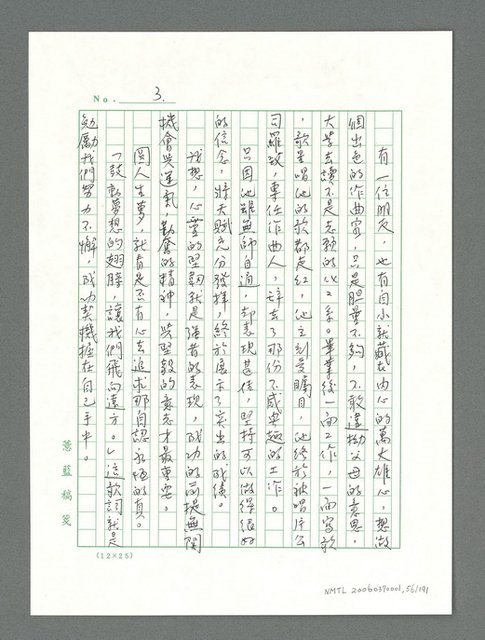 No. 3.
有一位朋友,也有自小就藏在內心的萬丈雄心,想做
個出色的作曲家,只是胆量不夠,不敢違拗父母的意思,
大學去讀不是志願的化工系。畢業後一面工作,一面寫歌
,歌星唱他的歌都走紅,他立刻受矚目,他終於被唱片公
司羅致,專任作曲人,辭去了那份不感興趣的工作。
只因他雖無師自通,卻表現甚佳,堅持可以做得很好
的信念,將天賦充分發揮,終於展示了突出的成績。
我想,心靈的堅韌就是強者的表現,成功的前提無關
機會與運氣,勤奮的精神,與堅毅的意志才最重要。
圓人生夢,就看是否有心去追求那自認永恆的真。
「鼓動夢想的翅膀,讓我們飛向遠方。」這歌詞就是
勉勵我們努力不懈,成功契機握在自己手中。
薏藍稿箋
(12×25)
NMTL 20060390001, 56/191